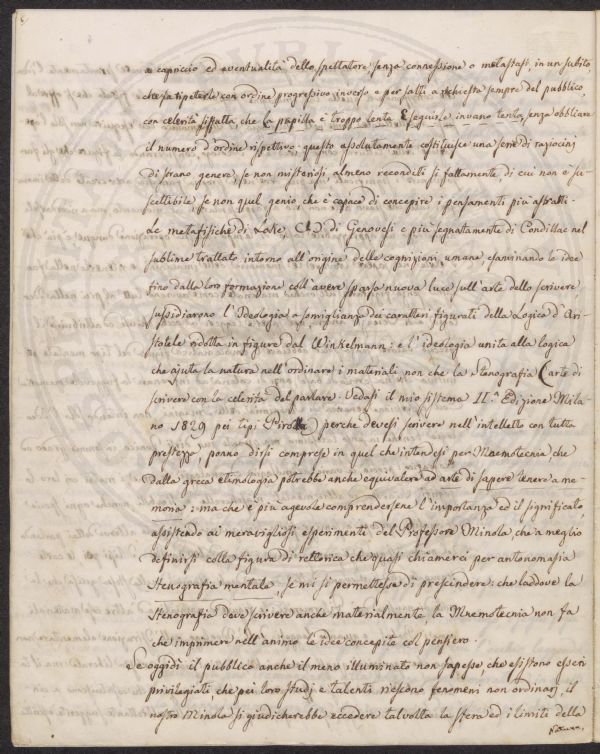 a capriccio ed eventualità dello spettatore senza connessione o metastasi, in un subito,
che fa ripeterle con ordine progressivo inverso e per salti a richiesta sempre del pubblico,
con celerità siffatta, che la papilla è troppo lenta E seguirle invano tenta, senza obbliare
il numero d'ordine rispettivo; questo assolutamente costituisce una serie di raziocinj
di strano genere, se non misteriosi, almeno reconditi sì fattamente, di cui non è su-
scettibile, se non quel genio, che è capace di concepire i pensamenti più astratti
metafisiche di Loke, di Genovesi e più segnatamente di Condillac nel
sublime trattato intorno all'origine delle cognizioni umane, esaminando le idee
fino dalla loro formazione coll'avere sparsa nuova luce sull'arte dello scrivere,
sussidiarono l'Ideologia a somiglianza dei caratteri figurati della Logica d'Ari-
stotele ridotta in figure dal Winkelmann: e l'ideologia unita alla logica
che ajuta la natura nell'ordinare i materiali, non che la Stenografia (arte di
scrivere con la celerità del parlare. Vedasi il mio sistema II.ª Edizione Mila-
no 1829 pei tipi Pirotta) perchè devesi scrivere nell'intelletto con tutta
prestezza, ponno dirsi comprese in quel che intendesi per Mnemotecnia che
dalla greca etimologia potrebbe anche equivalere ad arte di sapere tenere a me-
moria: ma che è più agevole comprendersene l'importanza ed il significato
assistendo ai meravigliosi esperimenti del Professore Minola, che a meglio
definirsi colla figura di rettorica che quasi chiamerei per antonomasia
Stenografia mentale, se mi si permettesse di prescindere: che laddove la
Stenografia deve scrivere anche materialmente la Mnemotecnia non fa
che imprimere nell'animo le idee concepite col pensiero.
Se oggidì il pubblico anche il meno illuminato non sapesse, che esistono esseri
privilegiati che pei loro studj e talenti riescono fenomeni non ordinarj, il
nostro Minola si giudicherebbe eccedere talvolta la sfera ed i limiti della
Natura,